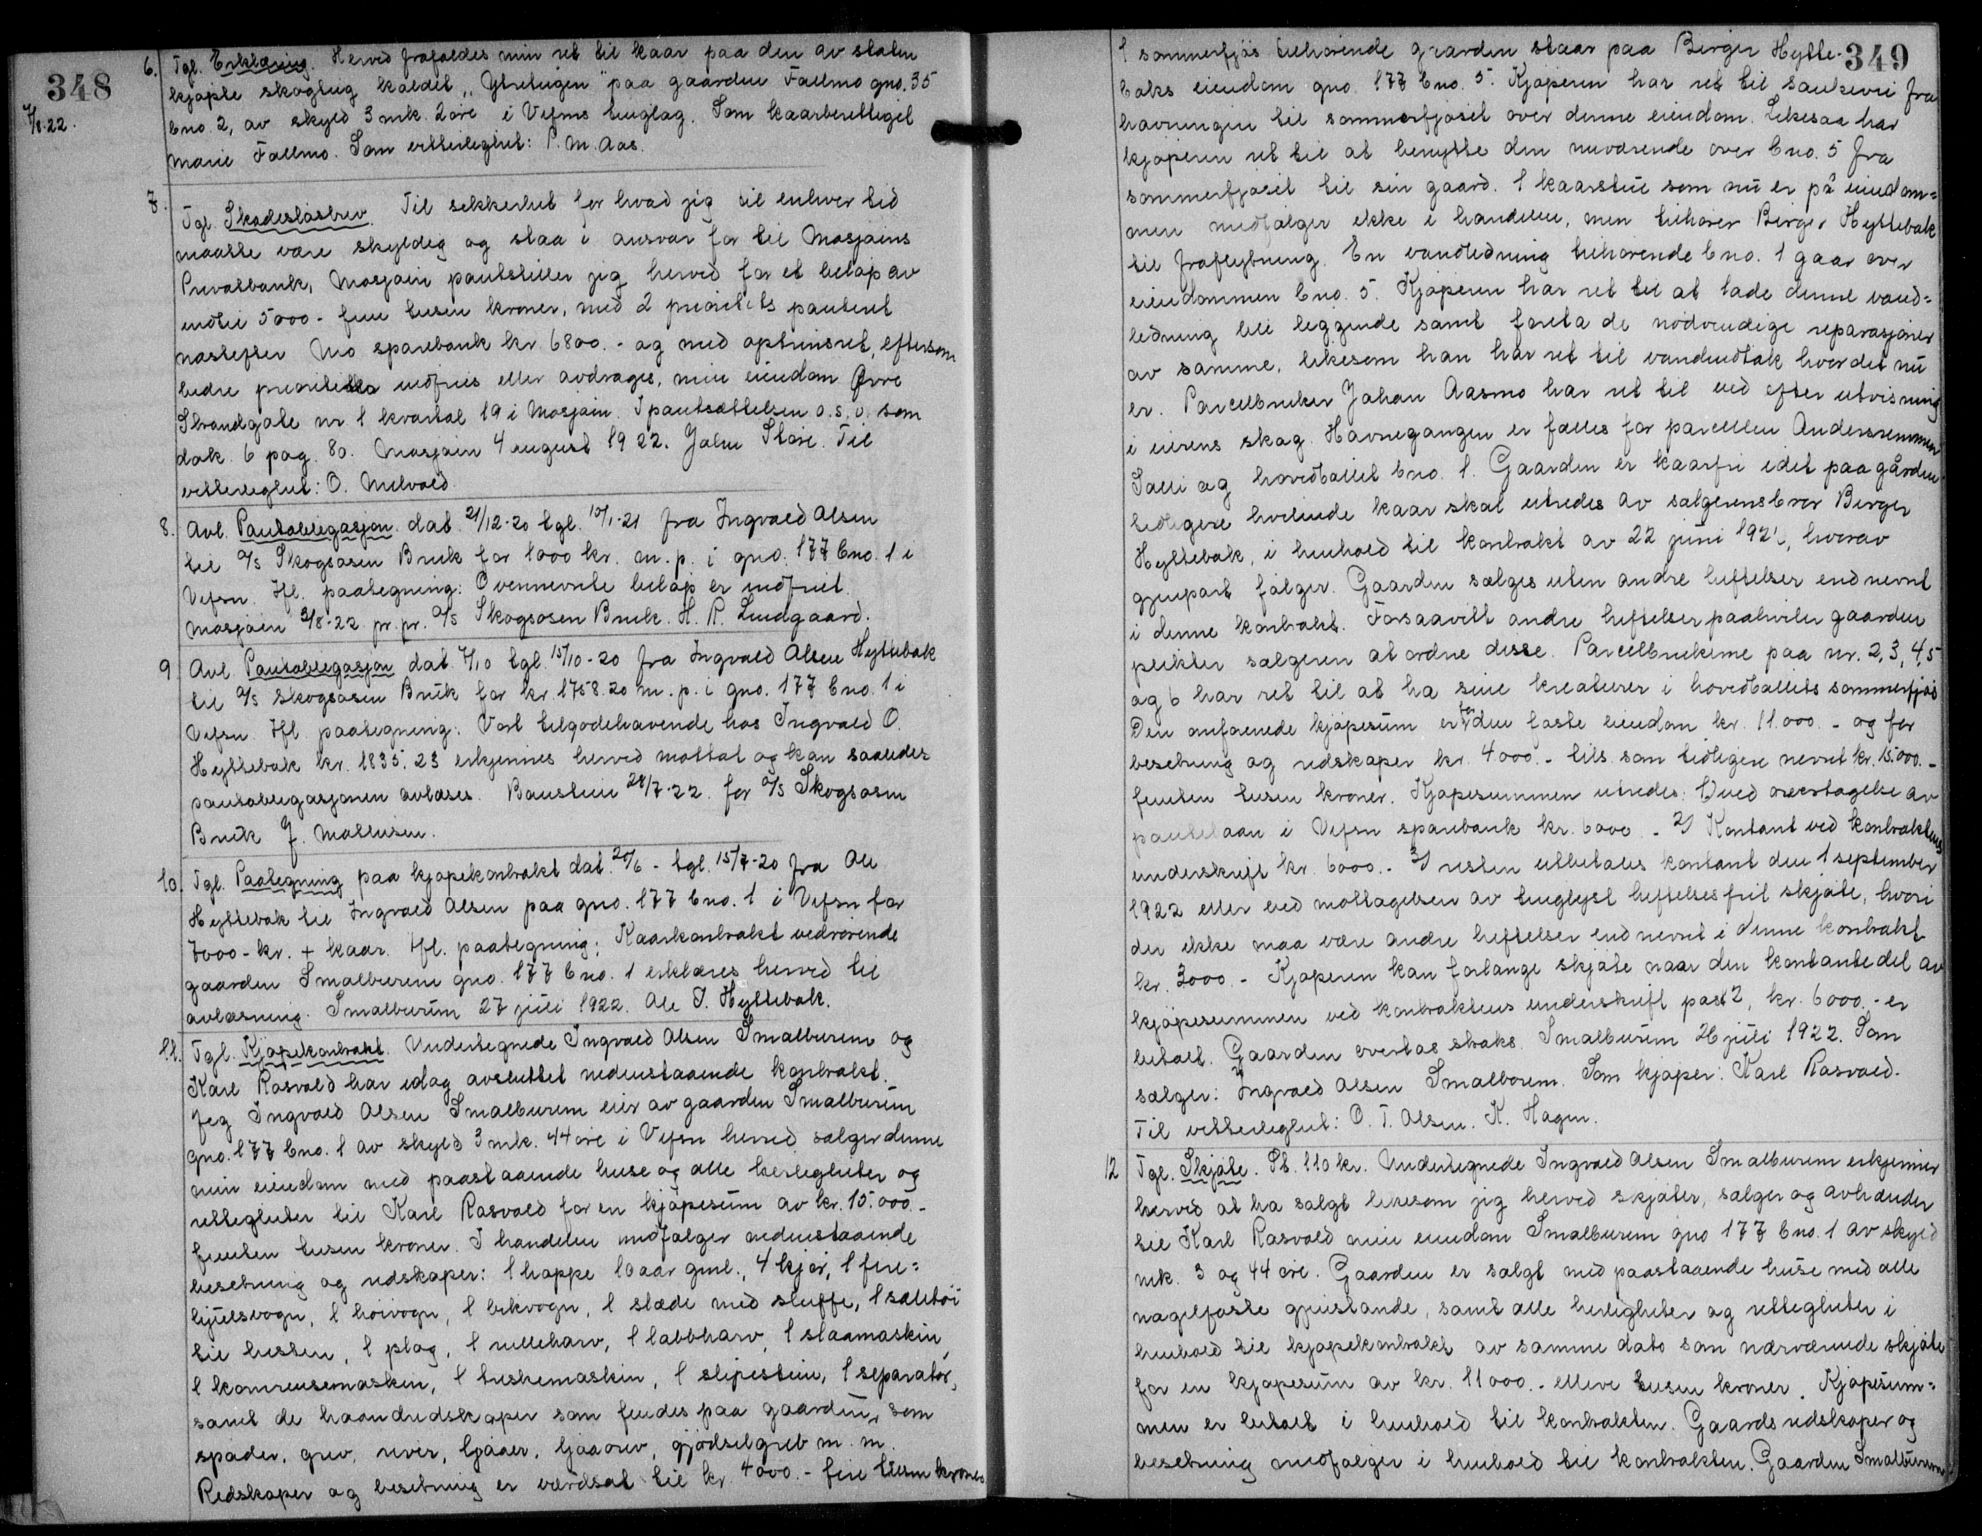 348
7/8.22.
6. Tgl. Erklæring. Herved frafaldes min ret til kaar paa den av staten
kjøpte skogteig kaldet „Ytreteigen" paa gaarden Fallmo gno. 35
bno. 2, av skyld 3 mk. 2 øre i Vefsns tinglag. Som kaarberettiget
Marie Fallmo. Som vitterlighet: P. M. Aas.
7. Tgl. Skadesløsbrev. Til sikkerhet for hvad jeg til enhver tid
maatte være skyldig og staa i ansvar for til Mosjøens
Privatbank, Mosjøen pantstiller jeg herved for et beløp av
indtil 5000.- fem tusen kroner, med 2 prioritets panteret
næstefter Mo sparebank kr. 6800.- og med optrinsret, eftersom
bedre prioriteter indfries eller avdrages, min eiendom Øvre
Strandgate nr 1 kvartal 19 i Mosjøen. I pantsættelsen o.s.v. som
dok. 6 pag. 80. Mosjøen 4 august 1922. John Støre. Til
vitterlighet: O. Melvold.
8. Avl. Pantobligasjon dat. 21/12-20 tgl. 10/1-21 fra Ingvald Olsen
til A/s Skogsosen Bruk for 1000 kr. m. p. i gno. 177 bno. 1 i
Vefsn. Hfl. paategning: Ovennevnte beløp er indfriet.
Mosjøen 3/8-22 pr. pr. A/s Skogsosen Bruk. H. R. Lindgaard.
9. Avl. Pantobligasjon dat. 7/10 tgl. 15/10-20 fra Ingvald Olsen Hyttebak
til A/s Skogsosen Bruk for kr. 1758.20 m. p. i gno. 177 bno. 1 i
Vefsn. Hfl. paategning: Vort tilgodehavende hos Ingvald O.
Hyttebak kr. 1835.23 erkjennes herved mottat og kan saaledes
pantobligasjonen avløses. Baustein 28/7-22. for A/s Skogsosen
Bruk J. Mathisen.
10. Tgl. Paategning paa kjøpekontrakt dat. 20/6 - tgl. 15/7-20 fra Ole
Hyttebak til Ingvald Olsen paa gno. 177 bno. 1 i Vefsn for
7000 - kr. + kaar. Hfl. paategning: Kaarkontrakt vedrørende
gaarden Smalburum gno. 177 bno. 1 erklæres herved til
avlæsning. Smalburum 27 juli 1922. Ole I. Hyttebak.
11. Tgl. Kjøpekontrakt. Undertegnede Ingvald Olsen Smalburum og
Karl Rosvold har idag avsluttet nedenstaaende kontrakt.
Jeg Ingvald Olsen Smalburum eier av gaarden Smalburum
gno. 177 bno. 1 av skyld 3 mk. 44 øre i Vefsn herred sælger denne
min eiendom med paastaaende huse og alle herligheter og
rettigheter til Karl Rosvold for en kjøpesum av kr. 15.000.-
femten tusen kroner. I handelen medfølger nedenstaaende
besetning og redskaper: 1 hoppe 10 aar gml., 4 kjør, 1 fire=
hjulsvogn, 1 høivogn, 1 bekvogn, 1 slæde med sluffe, 1 seletøi
til hesten, 1 plog, 1 rulleharv, 1 labbharv, 1 slaamaskin,
1 kornrensemaskin, 1 treskemaskin, 1 slipestein, 1 separator,
samt de haandredskaper som findes paa gaarden, som
spader, grev, river, ljaaer, ljaaorv, gjødselgreb m. m.
Redskaper og besetning er værdsat til kr. 4000.- fire tusen kroner
349
1 sommerfjøs tilhørende gaarden staar paa Birger Hytte-
baks eiendom gno. 177 bno. 5. Kjøperen har ret til sauevei fra
havningen til sommerfjøset over denne eiendom. Likesaa har
kjøperen ret til at benytte den nuværende over bno. 5 fra
sommerfjøset til sin gaard. 1 kaarstue som nu er på eiendom=
men medfølger ikke i handelen, men tilhører Birger Hyttebak
til fraflytning. En vandledning tilhørende bno. 1 gaar over
eiendommen bno. 5. Kjøperen har ret til at lade denne vand=
ledning bli liggende samt foreta de nødvendige reparasjoner
av samme, likesom han har ret til vanduttak hvor det nu
er. Parcelbruker Johan Aasmo har ret til ved efter utvisning
i eierens skog. Havnegangen er fælles for parcellen
Salli og hovedbøllet bno. 1. Gaarden er kaarfri idet paa gården
tidligere hvilende kaar skal utredes av sælgerens bror Birger
Hyttebak, i henhold til kontrakt av 22 juni 1921, hvorav
gjenpart følger. Gaarden sælges uten andre heftelser end nevnt
i denne kontrakt. Forsaavidt andre heftelser paahviler gaarden
plikter sælgeren at ordne disse. Parcelbrukerne paa nr. 2, 3, 4, 5
og 6 har ret til at ha sine kreaturer i hovedbøllets sommerfjøs
Den anførende kjøpesum er for den faste eiendom kr. 11.000.- og for
besetning og redskaper kr. 4000.- tils. som tidligere nevnt kr. 15.000.-
femten tusen kroner. Kjøpesummen utredes: 1) ved overtagelse av
pantelaan i Vefsn sparebank kr. 6000.- 2) Kontant ved kontraktens
underskrift kr. 6000.- 3) resten utbetales kontant den 1 september
1922 eller ved mottagelsen av tinglyst heftelsesfrit skjøte, hvori
der ikke maa være andre heftelser end nevnt i denne kontrakt
kr. 3000.- Kjøperen kan forlange skjøte naar den kontante del av
kjøpesummen ved kontraktens underskrift post 2, kr. 6000.- er
betalt. Gaarden overtas straks. Smalburum 26 juli 1922. Som
sælger: Ingvald Olsen Smalborum. Som kjøper: Karl Rosvold.
Til vitterlighet: O. T. Olsen. K. Hagen.
12 Tgl. Skjøte. St. 110 kr. Undertegnede Ingvald Olsen Smalburum erkjenner
herved at ha solgt likesom jeg herved skjøter, sælger og avhænder
til Karl Rosvold min eiendom Smalburum gno 177 bno. 1 av skyld
mk. 3 og 44 øre. Gaarden er solgt med paastaaende huse med alle
nagelfaste gjenstande, samt alle herligheter og rettigheter i
henhold til kjøpekontrakt av samme dato som nærværende skjøte
for en kjøpesum av kr. 11000.- elleve tusen kroner. Kjøpesum=
men er betalt i henhold til kontrakten. Gaards redskaper og
besetning medfølger i henhold til kontrakten. Gaarden Smalburum